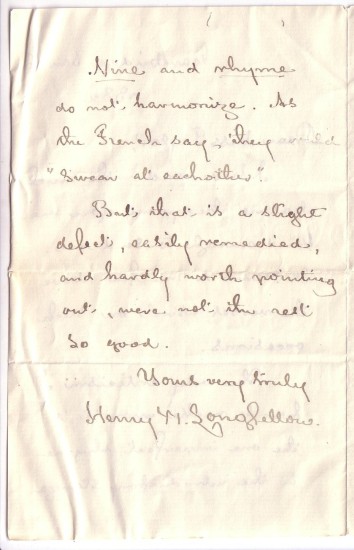 Nine and rhyme
do not harmonize. As
the French say, they
"swear at eachother".
But that is a slight
defect, easily remedied,
and hardly worth pointing
out, were not the rest
so good.
Yours very truly
Henry W. Longfellow.